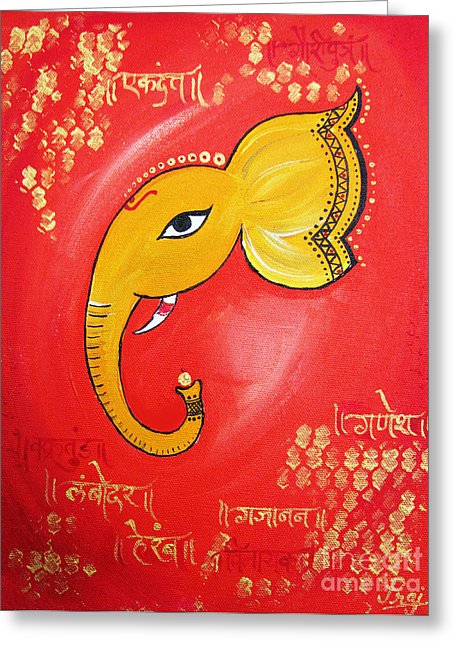 ॥गौरीपुत्रं॥
॥एकदंत॥
॥गणेश॥
॥वक्रतुंड॥
॥लंबोदर॥
॥गजानन॥
॥हेरंब॥
fine art
america